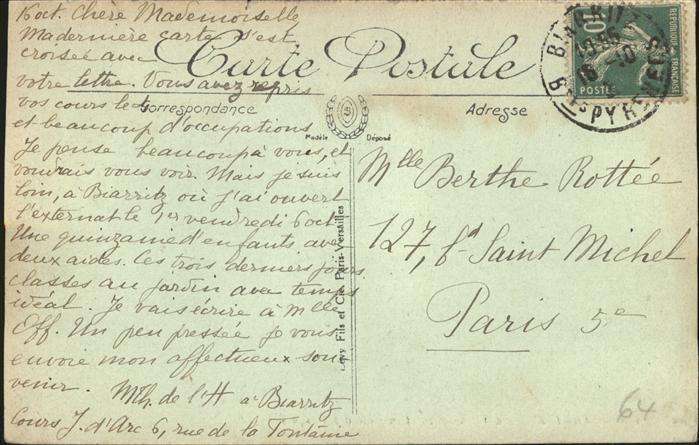 16 oct. Chère Mademoiselle
Ma dernière carte s'est
croisée avec
votre lettre. Vous avez repris
vos cours le 4
et beaucoup d'occupations
Je pense beaucoup à vous, et
voudrais vous voir. Mais je suis
loin, à Biarritz où j'ai ouvert
l'externat le 1er vendredi 6 oct.
Une quinzaine d'enfants avec
deux aides. Ces trois derniers jours
classes au jardin avec temps
idéal. Je vais écrire à Mlle
Off. Un peu pressée je vous
envoie mon affectueux sou-
venir.
Mth. de l'H à Biarritz
Cours J. d'Arc 6, rue de la Fontaine
Carte Postale
Correspondance
Adresse
Modèle Déposé
Lévy Fils et Cie, Paris-Versailles
Mlle Berthe Rottée
127, bd Saint Michel
Paris 5e
64
RÉPUBLIQUE FRANÇAISE
POSTES
BIARRITZ
Bses PYRENEES